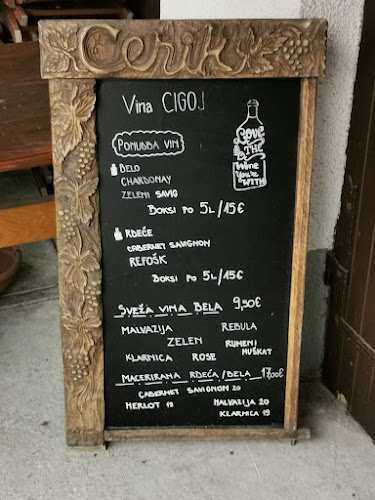 Cerik
Vina CIGOJ
PONUDBA VIN
LOVE
THE
Wine
You're
WITH
BELO
CHARDONAY
ZELENI SAVIG
BOKSI PO 5L/15€
RDEČE
CABERNET SAVIGNON
REFOŠK
BOKSI PO 5L/15€
SVEŽA VINA BELA 9,50€
MALVAZIJA REBULA
ZELEN RUMENI
MUŠKAT
KLARNICA ROSE
MACERIRANA RDEČA/BELA 17,00€
CABERNET SAVIGNON 20
MERLOT 19 MALVAZIJA 20
KLARNICA 19